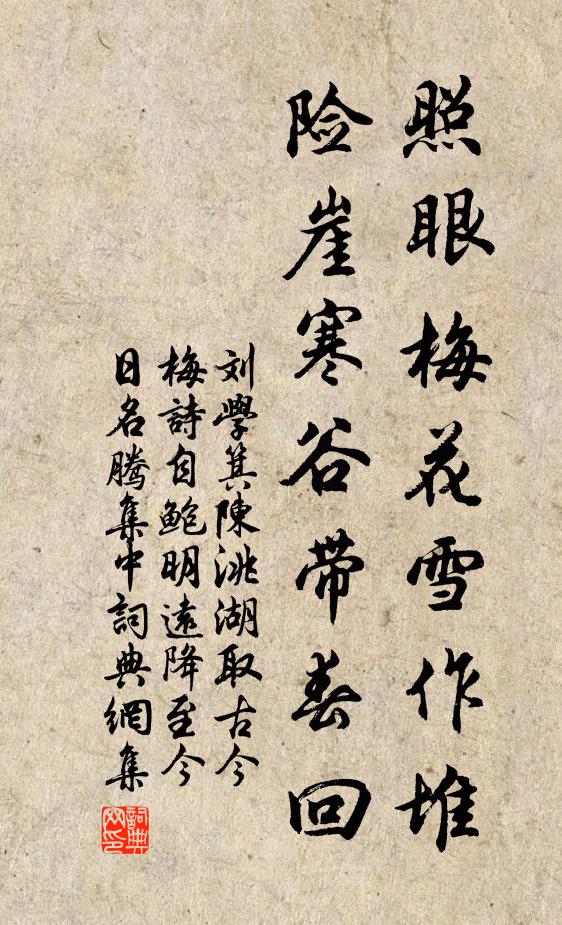 照眼梅花雪作堆
险崖寒谷带春回
刘學箕陳洮湖取古今
梅詩自鲍明遠降至今
日名騰集中詞典網集
詞典
网印